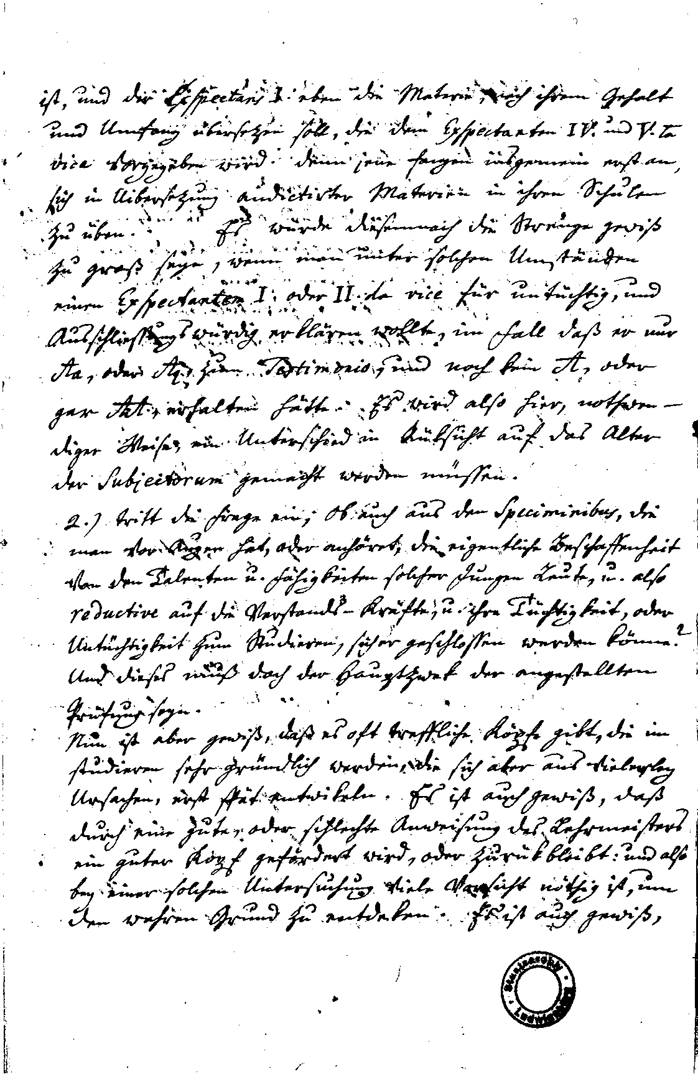 ist, und der Exspectans I. eben die Materie, nach ihrem Gehalt
und Umfang übersetzen soll, die dem Exspectanten IV. und V. ta
vice vorgegeben wird. denn jene fangen insgemein erst an,
sich in Uibersetzung audictirter Materien in ihren Schulen
zu üben. Es würde diesemnach die Strenge gewiß
zu groß seyn, wenn man unter solchen Umständen
einen Exspectanten I. oder II. da vice für untüchtig, und
Ausschliessungswürdig erklären wollte, im Fall daß er nur
Aa, oder zum Testimonio, und noch kein A, oder
gar AA, erhalten hätte. Es wird also hier, nothwen-
diger Weise, ein Unterschied in Rüksicht auf das Alter
der Subjectorum gemacht werden müssen.
2.) tritt die Frage ein; Ob auch aus den Speciminibus, die
man vor Augen hat, oder anhöret, die eigentliche Beschaffenheit
von den Talenten u. Fähigkeiten solcher Jungen Leute, u. also
reductive auf die Verstands-Kräfte, u. ihre Tüchtigkeit, oder
Untüchtigkeit zum Studieren, sicher geschlossen werden könne?
Und dieses muß doch der Hauptzwek der angestellten
Prüfung seyn.
Nun ist aber gewiß, daß es oft treffliche Köpfe gibt, die im
studieren sehr gründlich werden, die sich aber aus vielerley
Ursachen, erst spät entwikeln. Es ist auch gewiß, daß
durch eine gute, oder schlechte Anweisung des Lehrmeisters
ein guter Kopf gefördert wird, oder zurükbleibt: und also
bey einer solchen Untersuchung viele Vorsicht nöthig ist, um
den wahren Grund zu entdeken. Es ist auch gewiß,
Staatsarchiv
Ludwigsburg